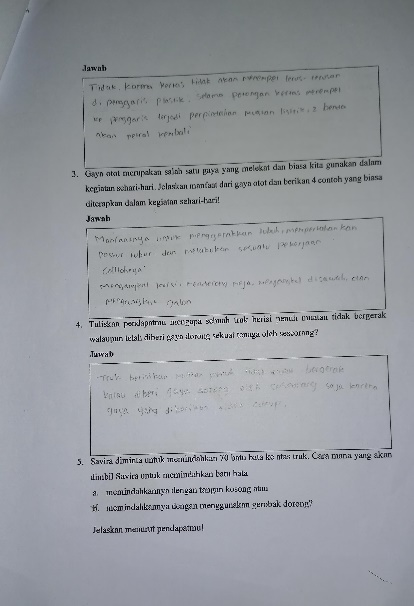 Jawab
Tidak, karena kertas tidak akan menempel terus-menerus
di penggaris plastik. Selama potongan kertas menempel
di penggaris terjadi perpindahan muatan listrik, &
akan netral kembali
3. Gaya otot merupakan salah satu gaya yang melekat dan biasa kita gunakan dalam
kegiatan sehari-hari. Jelaskan manfaat dari gaya otot dan berikan 4 contoh yang biasa
diterapkan dalam kegiatan sehari-hari!
Jawab
Manfaatnya untuk menggerakkan tubuh, mempertahankan
postur tubuh dan melakukan sesuatu pekerjaan
Contohnya:
mengangkat kursi, mendorong meja,
mengangkat galon
4. Tuliskan pendapatmu mengapa sebuah truk berisi penuh muatan tidak bergerak
walaupun telah diberi gaya dorong sekuat tenaga oleh seseorang?
Jawab
Truk
kalau diberi gaya dorong oleh seseorang saja karena
gaya yang diberikan
5. Savira diminta untuk memindahkan 70 batu bata ke atas truk. Cara mana yang akan
diambil Savira untuk memindahkan batu bata
a. memindahkannya dengan tangan kosong atau
b. memindahkannya dengan menggunakan gerobak dorong?
Jelaskan menurut pendapatmu!